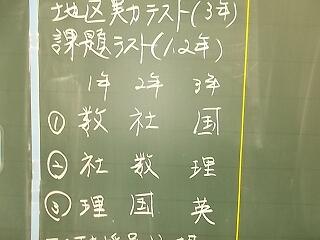 地区実力テスト(3年)
課題テスト(1,2年)
1年 2年 3年
① 数 社 国
② 社 数 理
③ 理 国 英